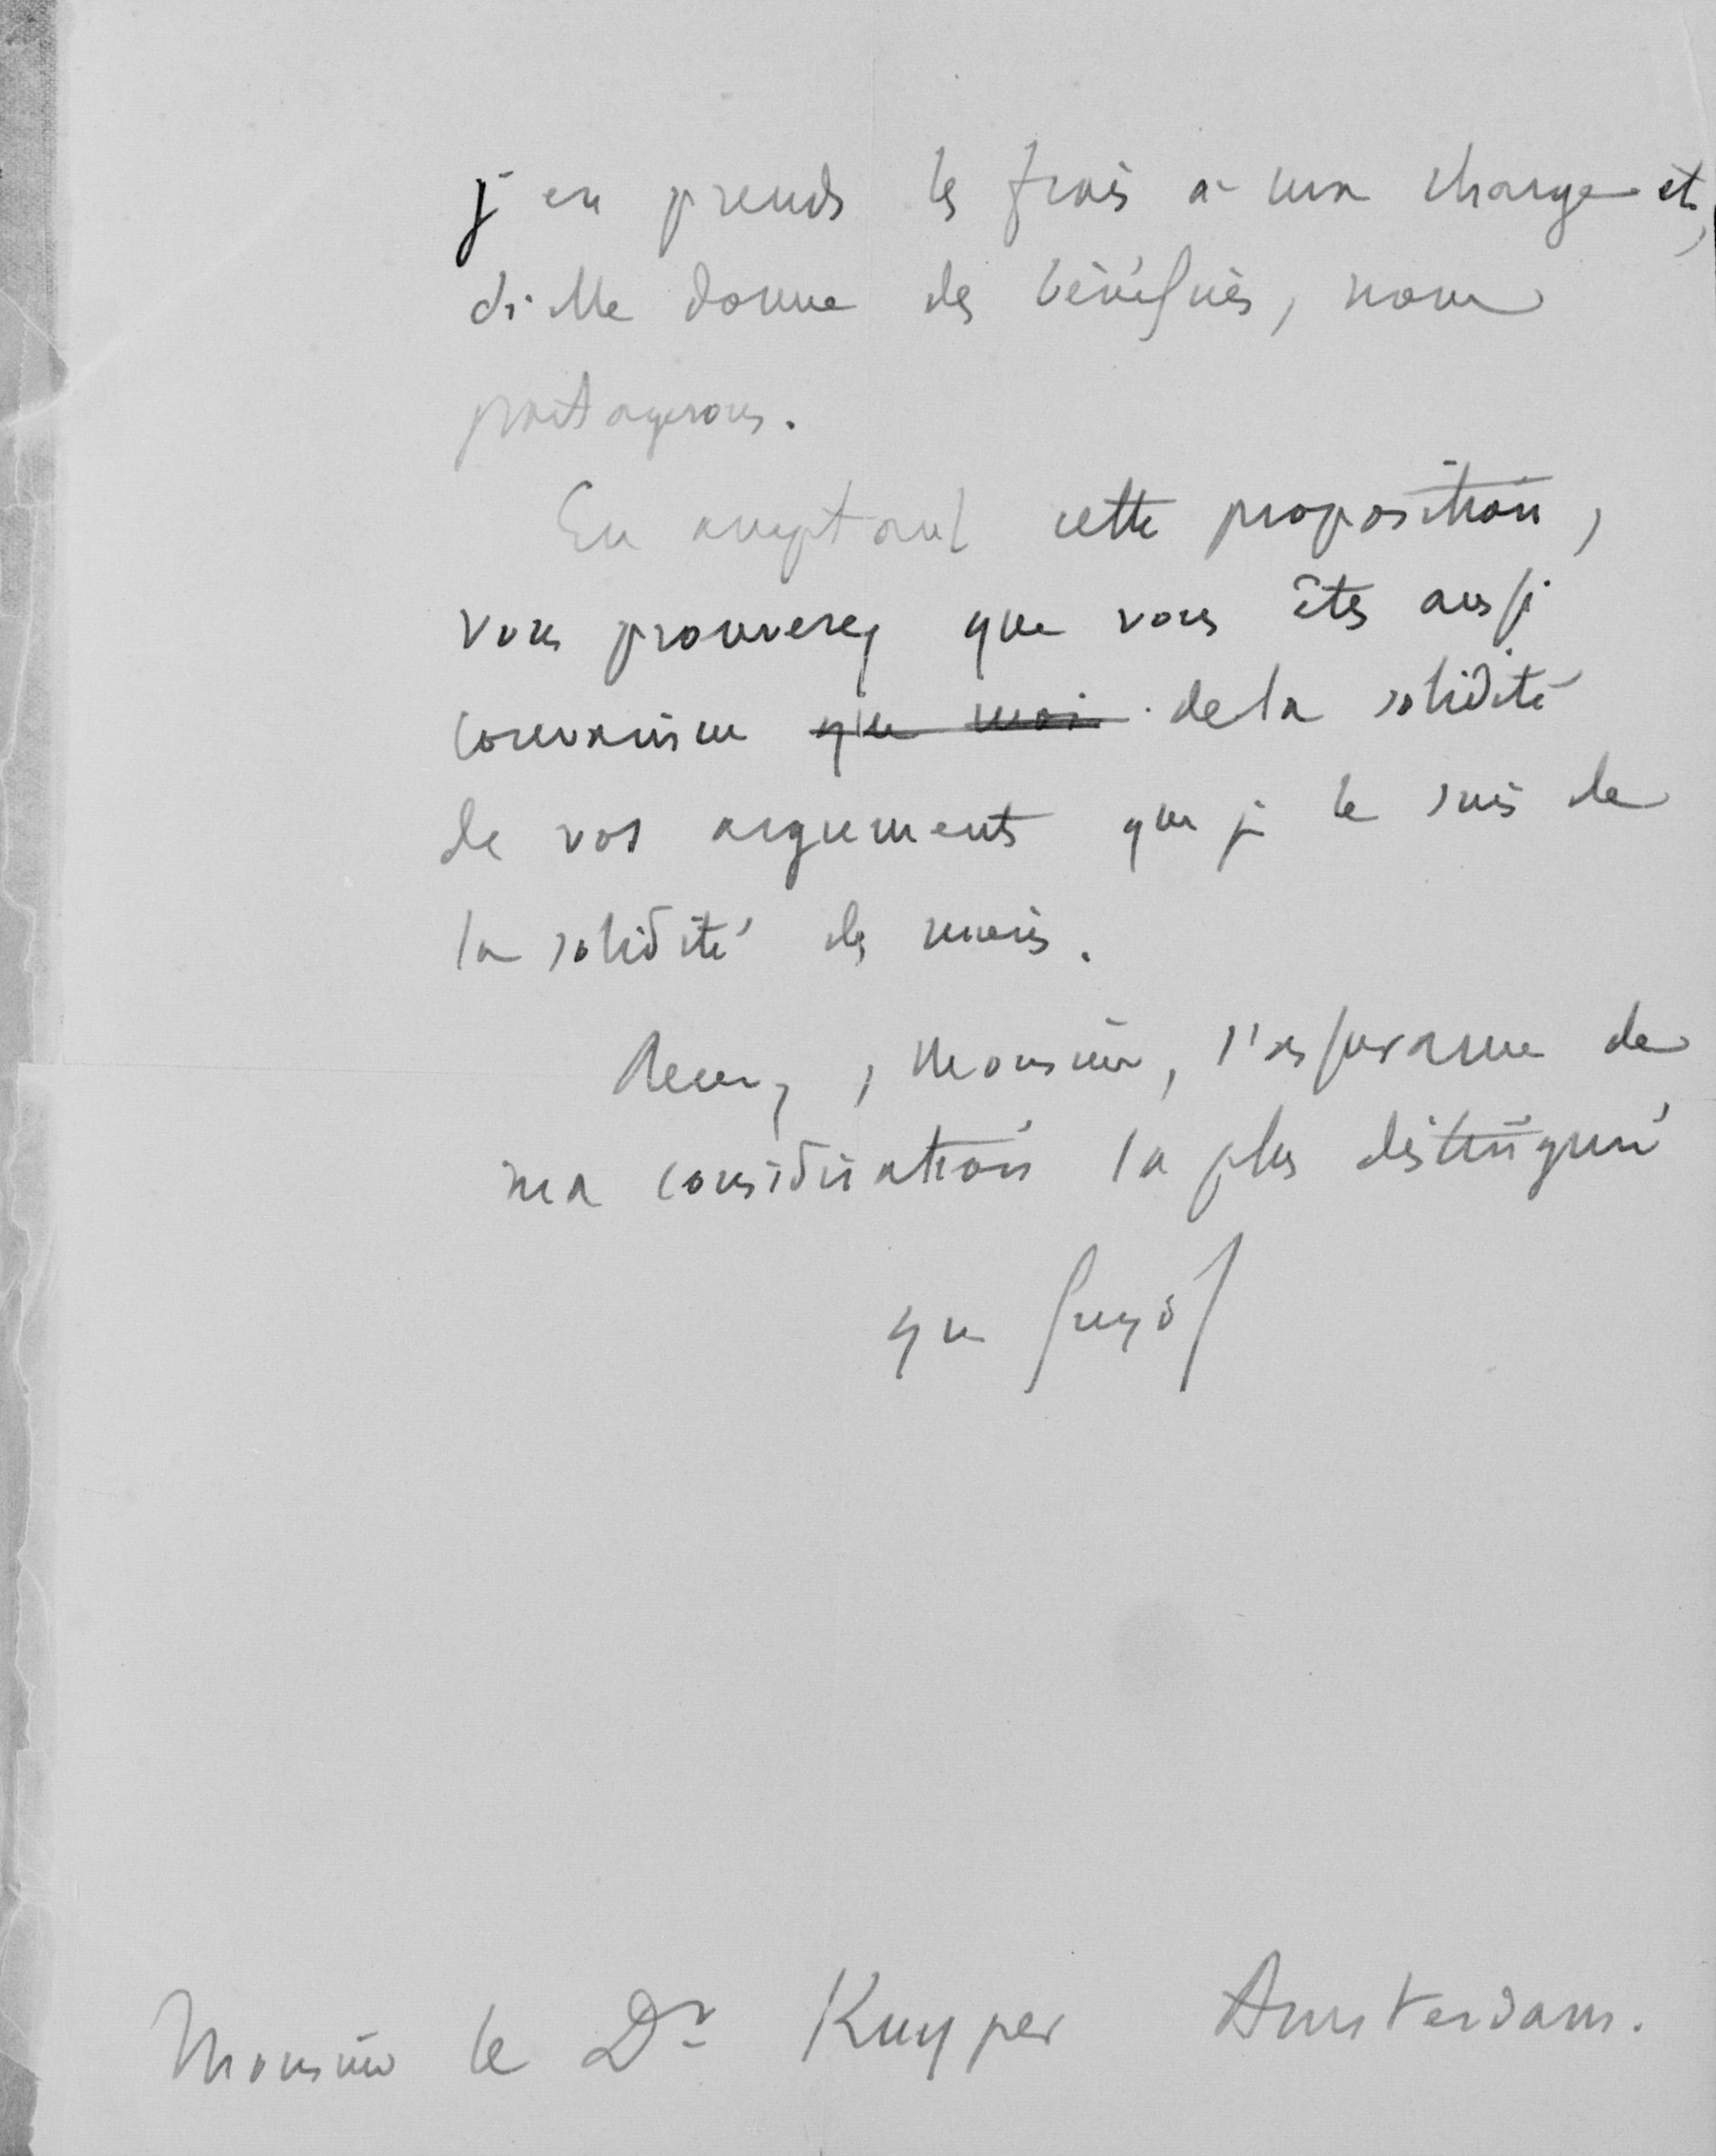 j'en prends les frais à ma charge et,
si elle donne des bénéfices, nous
partagerons.
En acceptant cette proposition,
vous prouverez que vous êtes aussi
convaincu que moi de la solidité
de vos arguments que je le suis de
la solidité des miens.
Recevez, Monsieur, l'assurance de
ma considération la plus distinguée
Yves Guyot
Monsieur le Dr Kuyper Amsterdam.